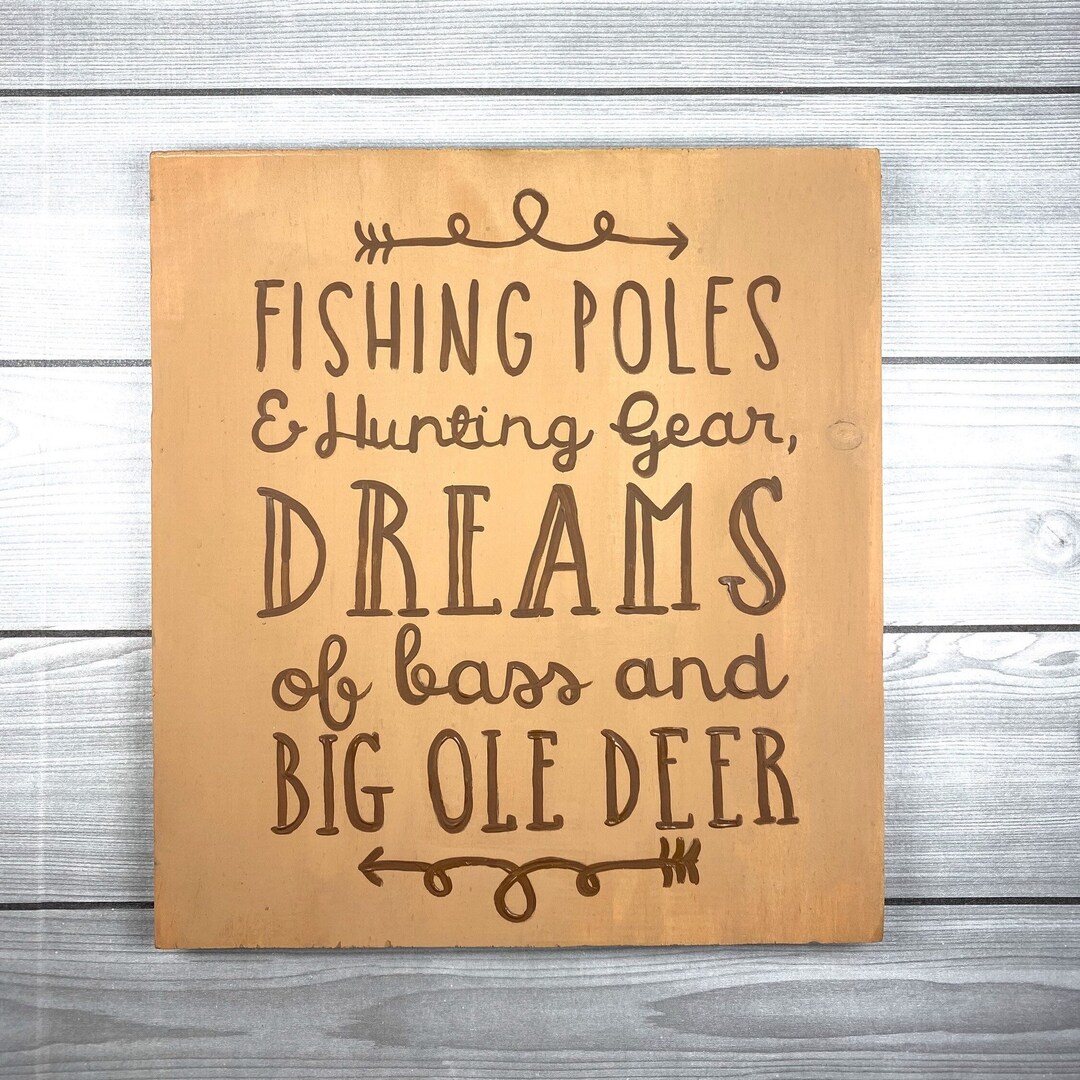 FISHING POLES
& Hunting Gear,
DREAMS
of bass and
BIG OLE DEER